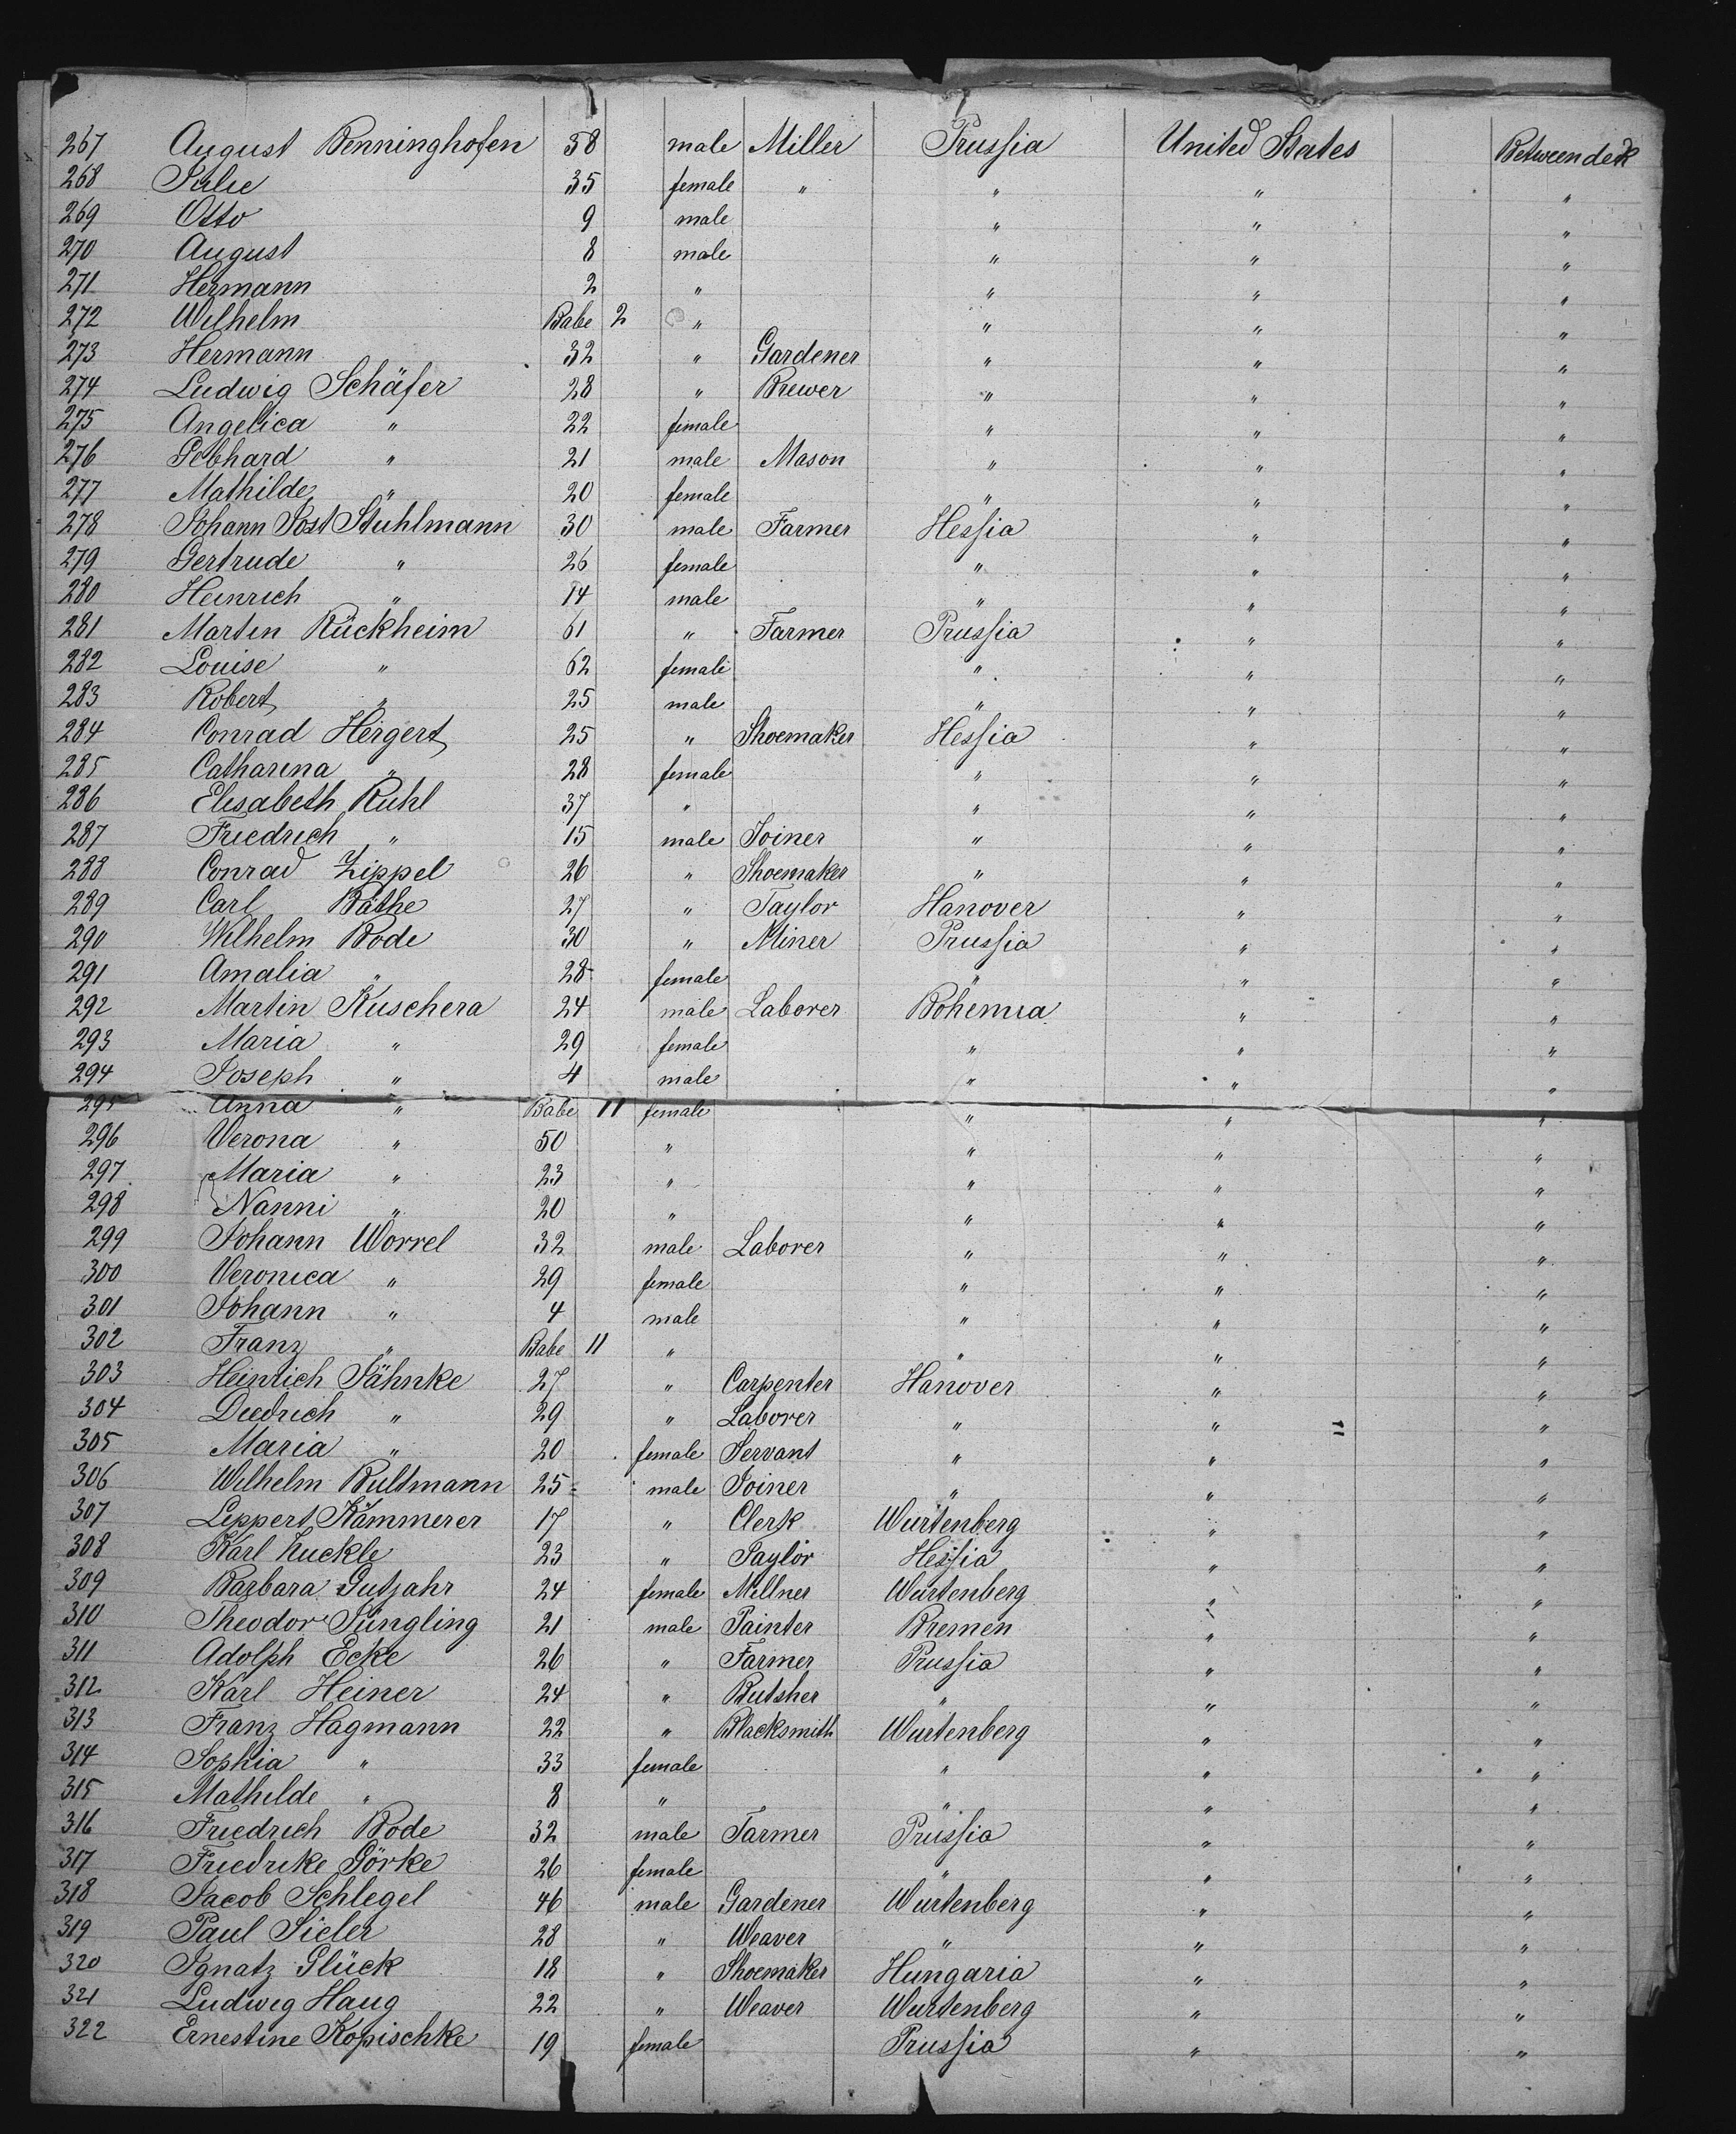 267 August Benninghofen 38 male Miller Prussia United States Betweendeck
268 Julie 35 female " " " "
269 Otto 9 male " " "
270 August 8 male " " "
271 Hermann 2 " " " "
272 Wilhelm Babe 2 " " " "
273 Hermann 32 " Gardener " " "
274 Ludwig Schäfer 28 " Brewer " " "
275 Angelica " 22 female " " "
276 Gebhard " 21 male Mason " " "
277 Mathilde " 20 female " " "
278 Johann Jost Stuhlmann 30 male Farmer Hessia " "
279 Gertrude " 26 female " " "
280 Heinrich " 14 male " " "
281 Martin Rückheim 61 " Farmer Prussia " "
282 Louise " 62 female " " "
283 Robert " 25 male " " "
284 Conrad Heigert 25 " Shoemaker Hessia " "
285 Catharina " 28 female " " "
286 Elisabeth Ruhl 37 " " " "
287 Friedrich " 15 male Joiner " " "
288 Conrad Zippel 26 " Shoemaker " " "
289 Carl Bäthe 27 " Taylor Hanover " "
290 Wilhelm Bode 30 " Miner Prussia " "
291 Amalia " 28 female " " "
292 Martin Kuschera 24 male Laborer Bohemia " "
293 Maria " 29 female " " "
294 Joseph " 4 male " " "
295 Anna " Babe 11 female " " "
296 Verona " 50 " " " "
297 Maria " 23 " " " "
298 Nanni " 20 " " " "
299 Johann Worrel 32 male Laborer " " "
300 Veronica " 29 female " " "
301 Johann " 4 male " " "
302 Franz " Babe 11 " " " "
303 Heinrich Jähnke 27 " Carpenter Hanover " "
304 Diedrich " 29 " Laborer " " "
305 Maria " 20 female Servant " " "
306 Wilhelm Bultmann 25 male Joiner " " "
307 Leppert Kämmerer 17 " Clerk Wurtenberg " "
308 Karl Kuckle 23 " Taylor Hessia " "
309 Barbara Gutjahr 24 female Millner Wurtenberg " "
310 Theodor Jüngling 21 male Painter Bremen " "
311 Adolph Ecke 26 " Farmer Prussia " "
312 Karl Heiner 24 " Butsher " " "
313 Franz Hagmann 22 " Blacksmith Wurtenberg " "
314 Sophia " 33 female " " "
315 Mathilde " 8 " " " "
316 Friedrich Bode 32 male Farmer Prussia " "
317 Friedrike Görke 26 female " " "
318 Jacob Schlegel 46 male Gardener Wurtenberg " "
319 Paul Sieler 28 " Weaver " " "
320 Ignatz Glück 18 " Shoemaker Hungaria " "
321 Ludwig Haug 22 " Weaver Wurtenberg " "
322 Ernestine Kopischke 19 female Prussia " "